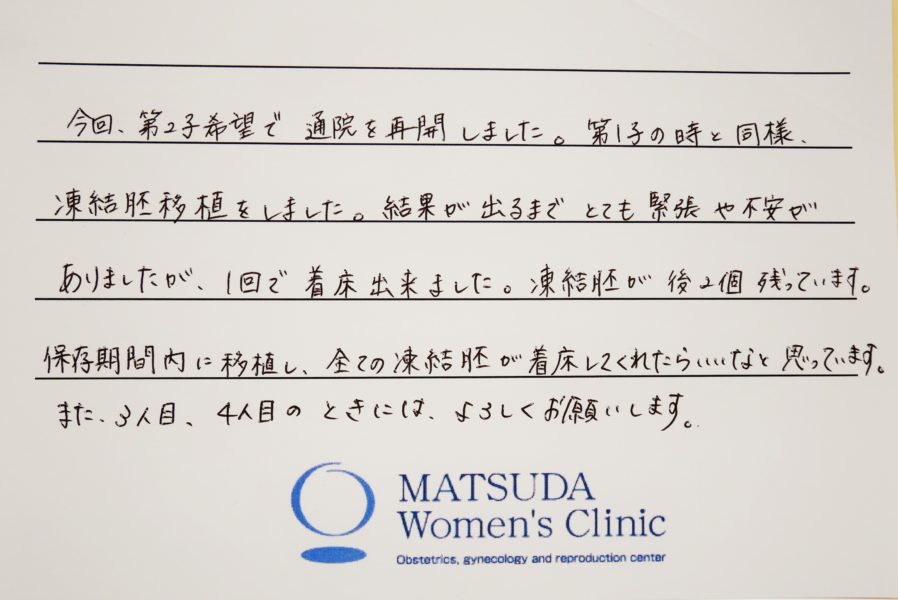 今回、第2子希望で通院を再開しました。第1子の時と同様、
凍結胚移植をしました。結果が出るまでとても緊張や不安が
ありましたが、1回で着床出来ました。凍結胚が後2個残っています。
保存期間内に移植し、全ての凍結胚が着床してくれたらいいなと思っています。
また、3人目、4人目のときには、よろしくお願いします。
MATSUDA
Women's Clinic
Obstetrics, gynecology and reproduction center